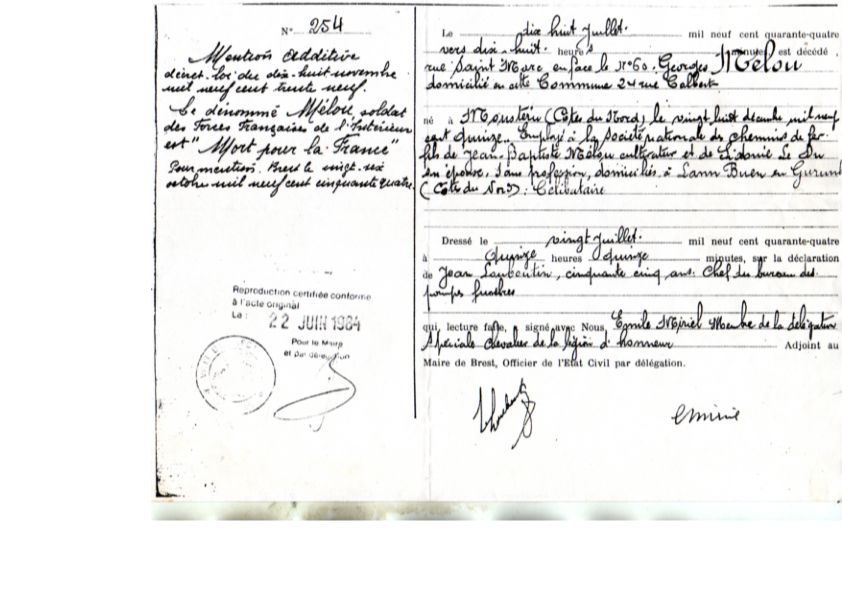 N° 254
Mention additive
décret-loi du dix-huit novembre
mil neuf cent trente neuf.
Le dénommé Mélou, soldat
des Forces Françaises de l'Intérieur
est "Mort pour la France"
Pour mention. Brest le vingt-six
octobre mil neuf cent cinquante quatre.
Reproduction certifiée conforme
à l'acte original
Le : 22 JUIN 1984
Pour le Maire
et par délégation
Le dix huit juillet. mil neuf cent quarante-quatre
vers dix-huit. heures minutes est décédé
rue Saint Marc en face le n°60. Georges MÉLOU
domicilié en cette Commune 24 rue Colbert
né à Moustéru (Côtes du Nord) le vingt huit décembre mil neuf
cent quinze. Employé à la Société nationale des chemins de fer.
fils de Jean-Baptiste Mélou cultivateur et de Le Du
son épouse, sans profession, domiciliés à Lann Buen en
(Côtes du Nord). Célibataire
Dressé le vingt juillet. mil neuf cent quarante-quatre
à quinze heures quinze minutes, sur la déclaration
de Jean cinquante cinq ans. Chef du bureau des
pompes funèbres
qui, lecture faite, a signé avec Nous, Emile Miniel Membre de la délégation
Spéciale chevalier de la légion d'honneur Adjoint au
Maire de Brest, Officier de l'Etat Civil par délégation.